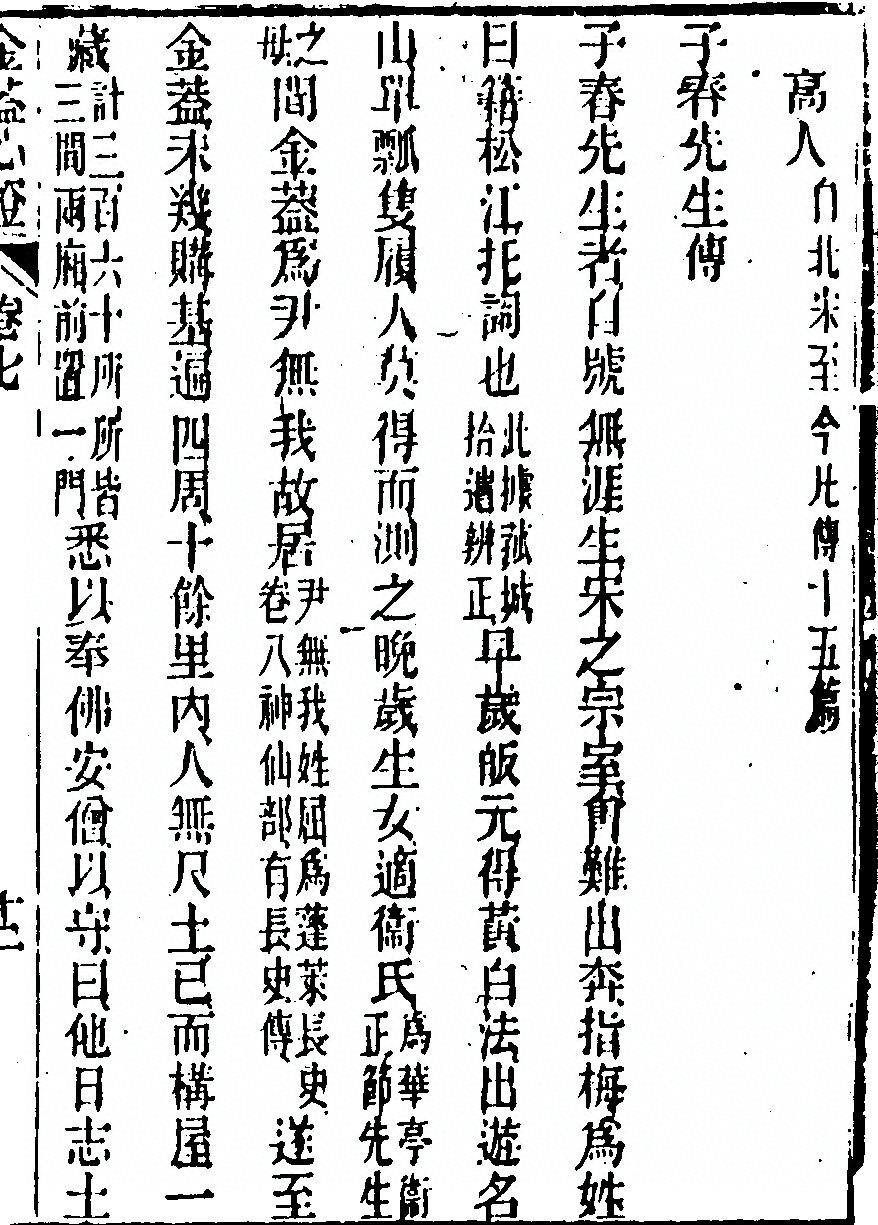 高人自北宋至今凡傳十五篇
子春先生傳
子春先生者自號無涯生宋之宗室有難出奔指梅爲姓
曰籍松江托詞也此據菰城拾遺辨正早歲皈元得黃白法出遊名
山單瓢隻履人莫得而測之晚歲生女適衞氏爲華亭衞正節先生
之母間金蓋爲尹無我故居尹無我姓屈爲蓬萊長史卷八神仙部有長史傳遂至
金蓋未幾購基遍四周十餘里內人無尺土已而構屋一
藏計三百六十所所皆三間兩廂前置一門悉以奉佛安僧以守曰他日志士
金蓋心證 卷七 十二